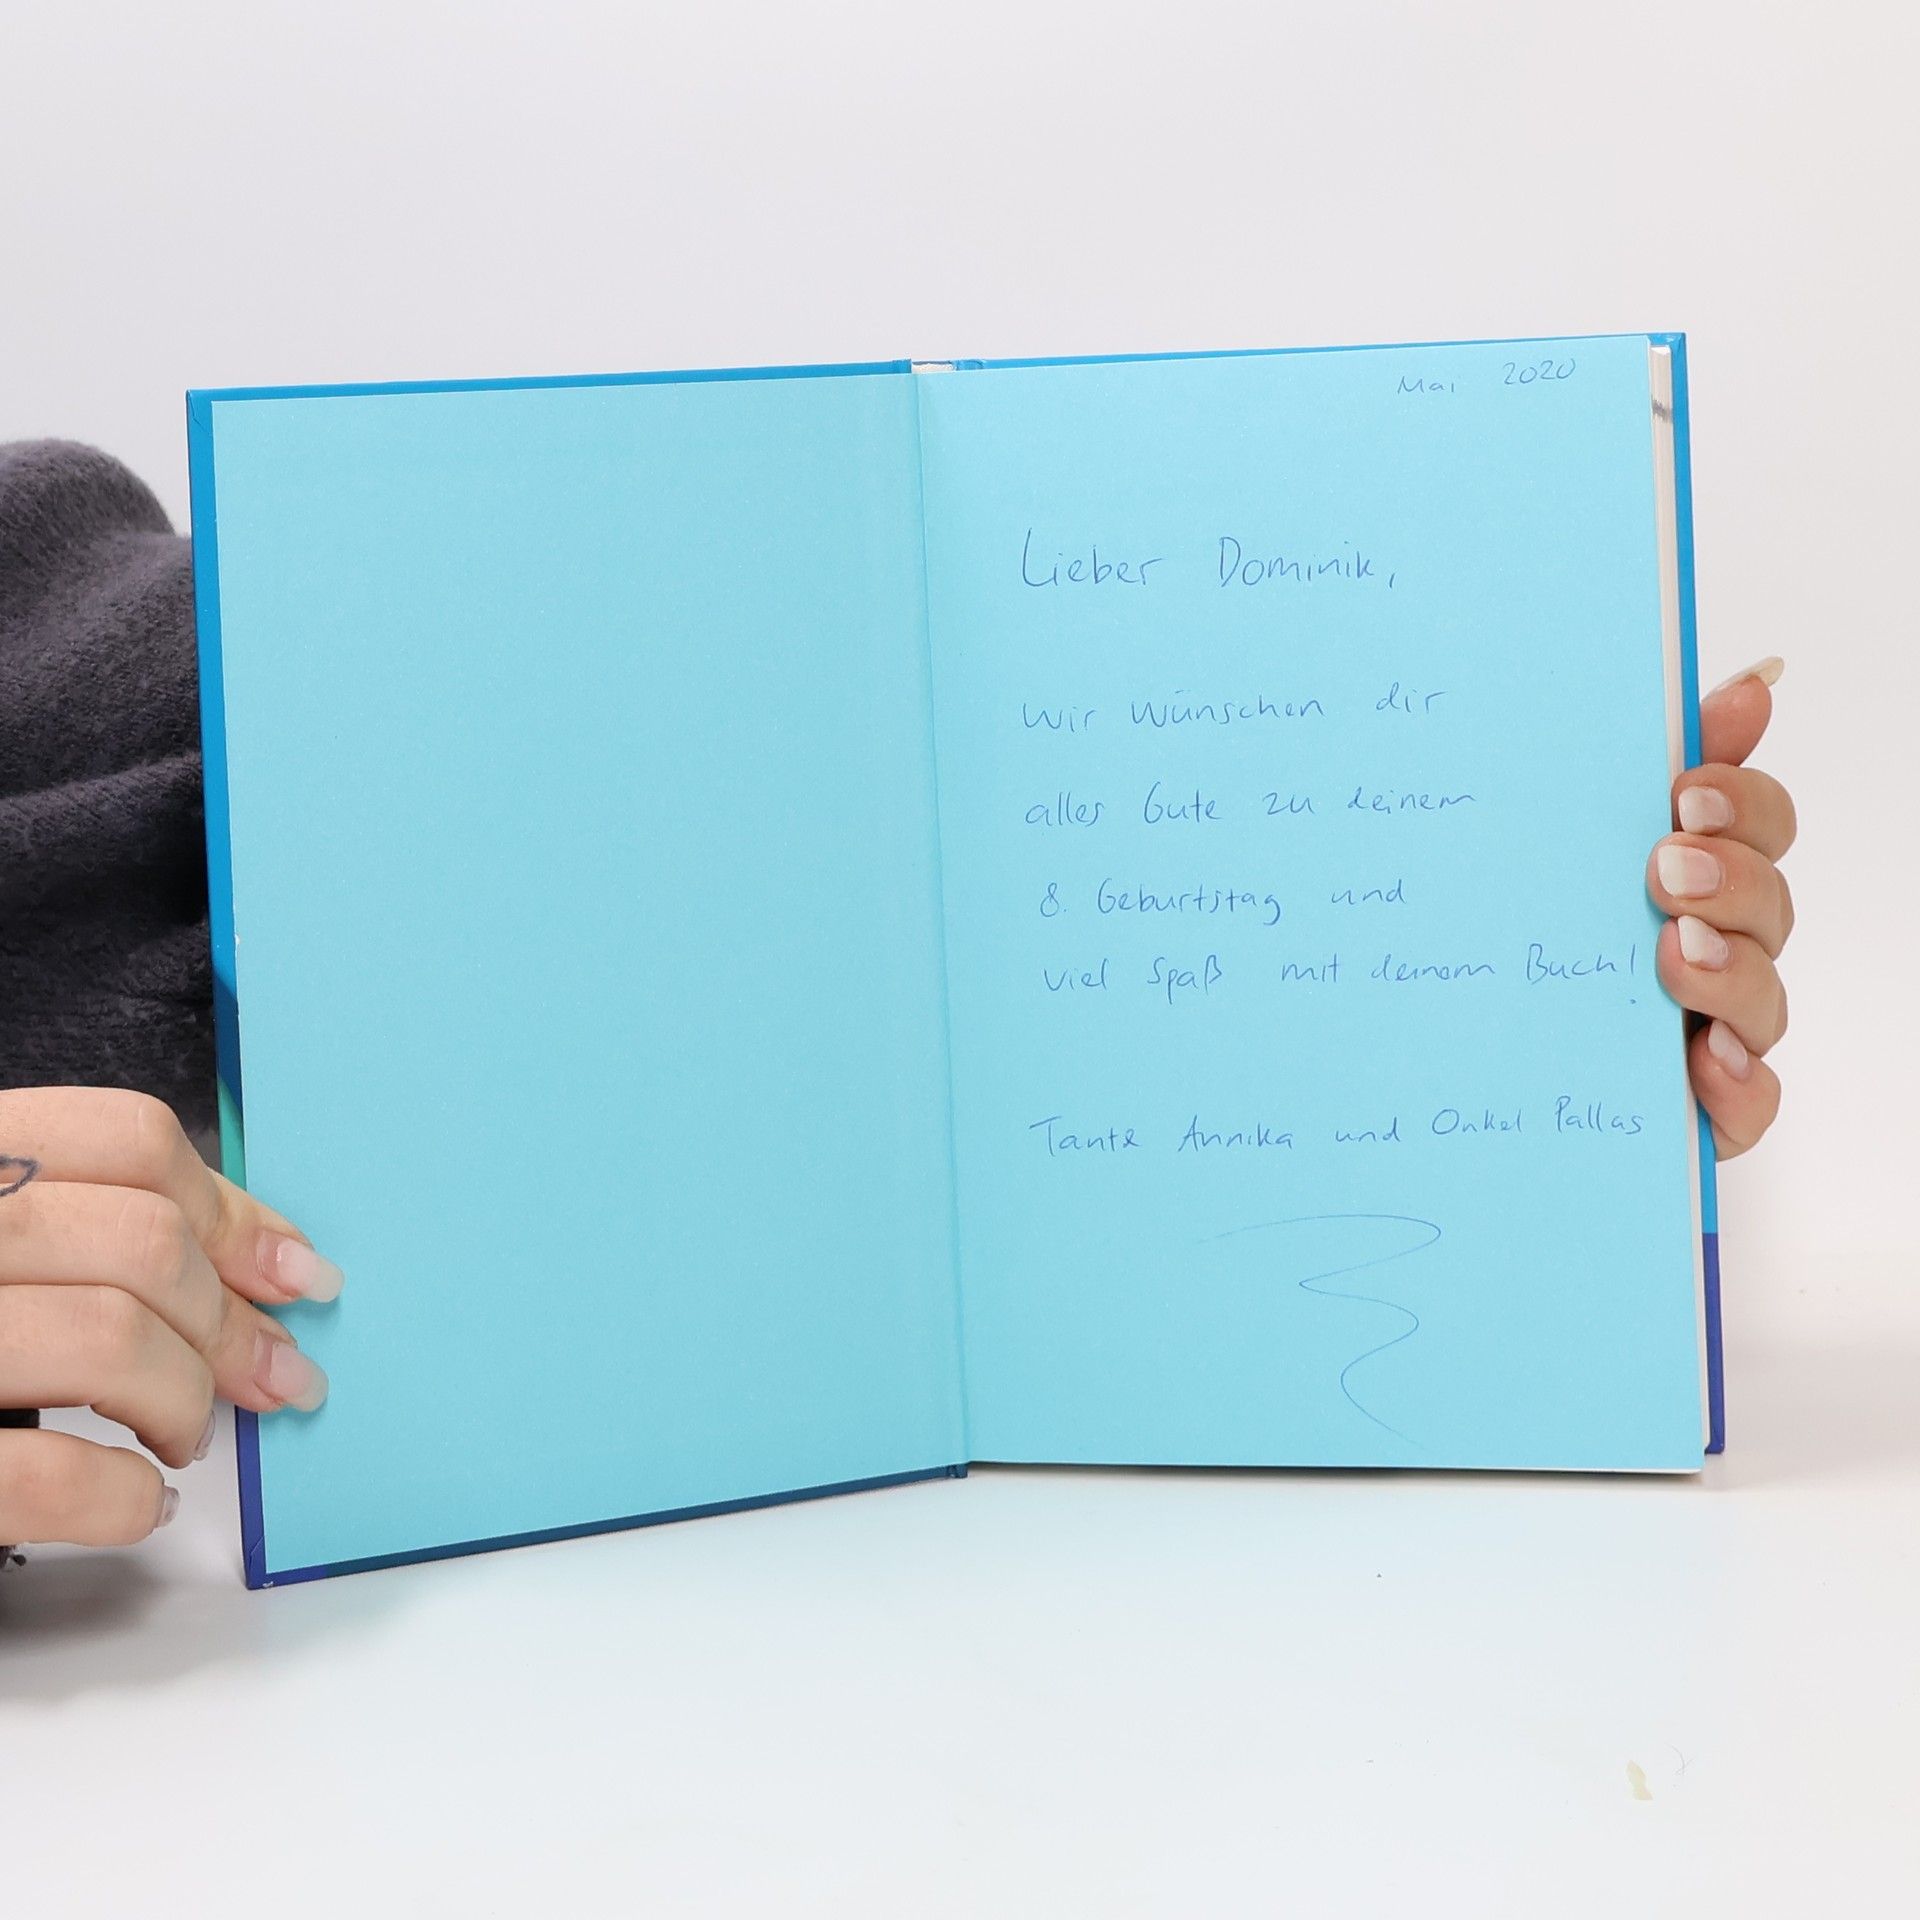 Mai 2020
Lieber Dominik,
Wir Wünschen dir
alles Gute zu deinem
8. Geburtstag und
viel Spaß mit deinem Buch!
Tante Annika und Onkel Pallas